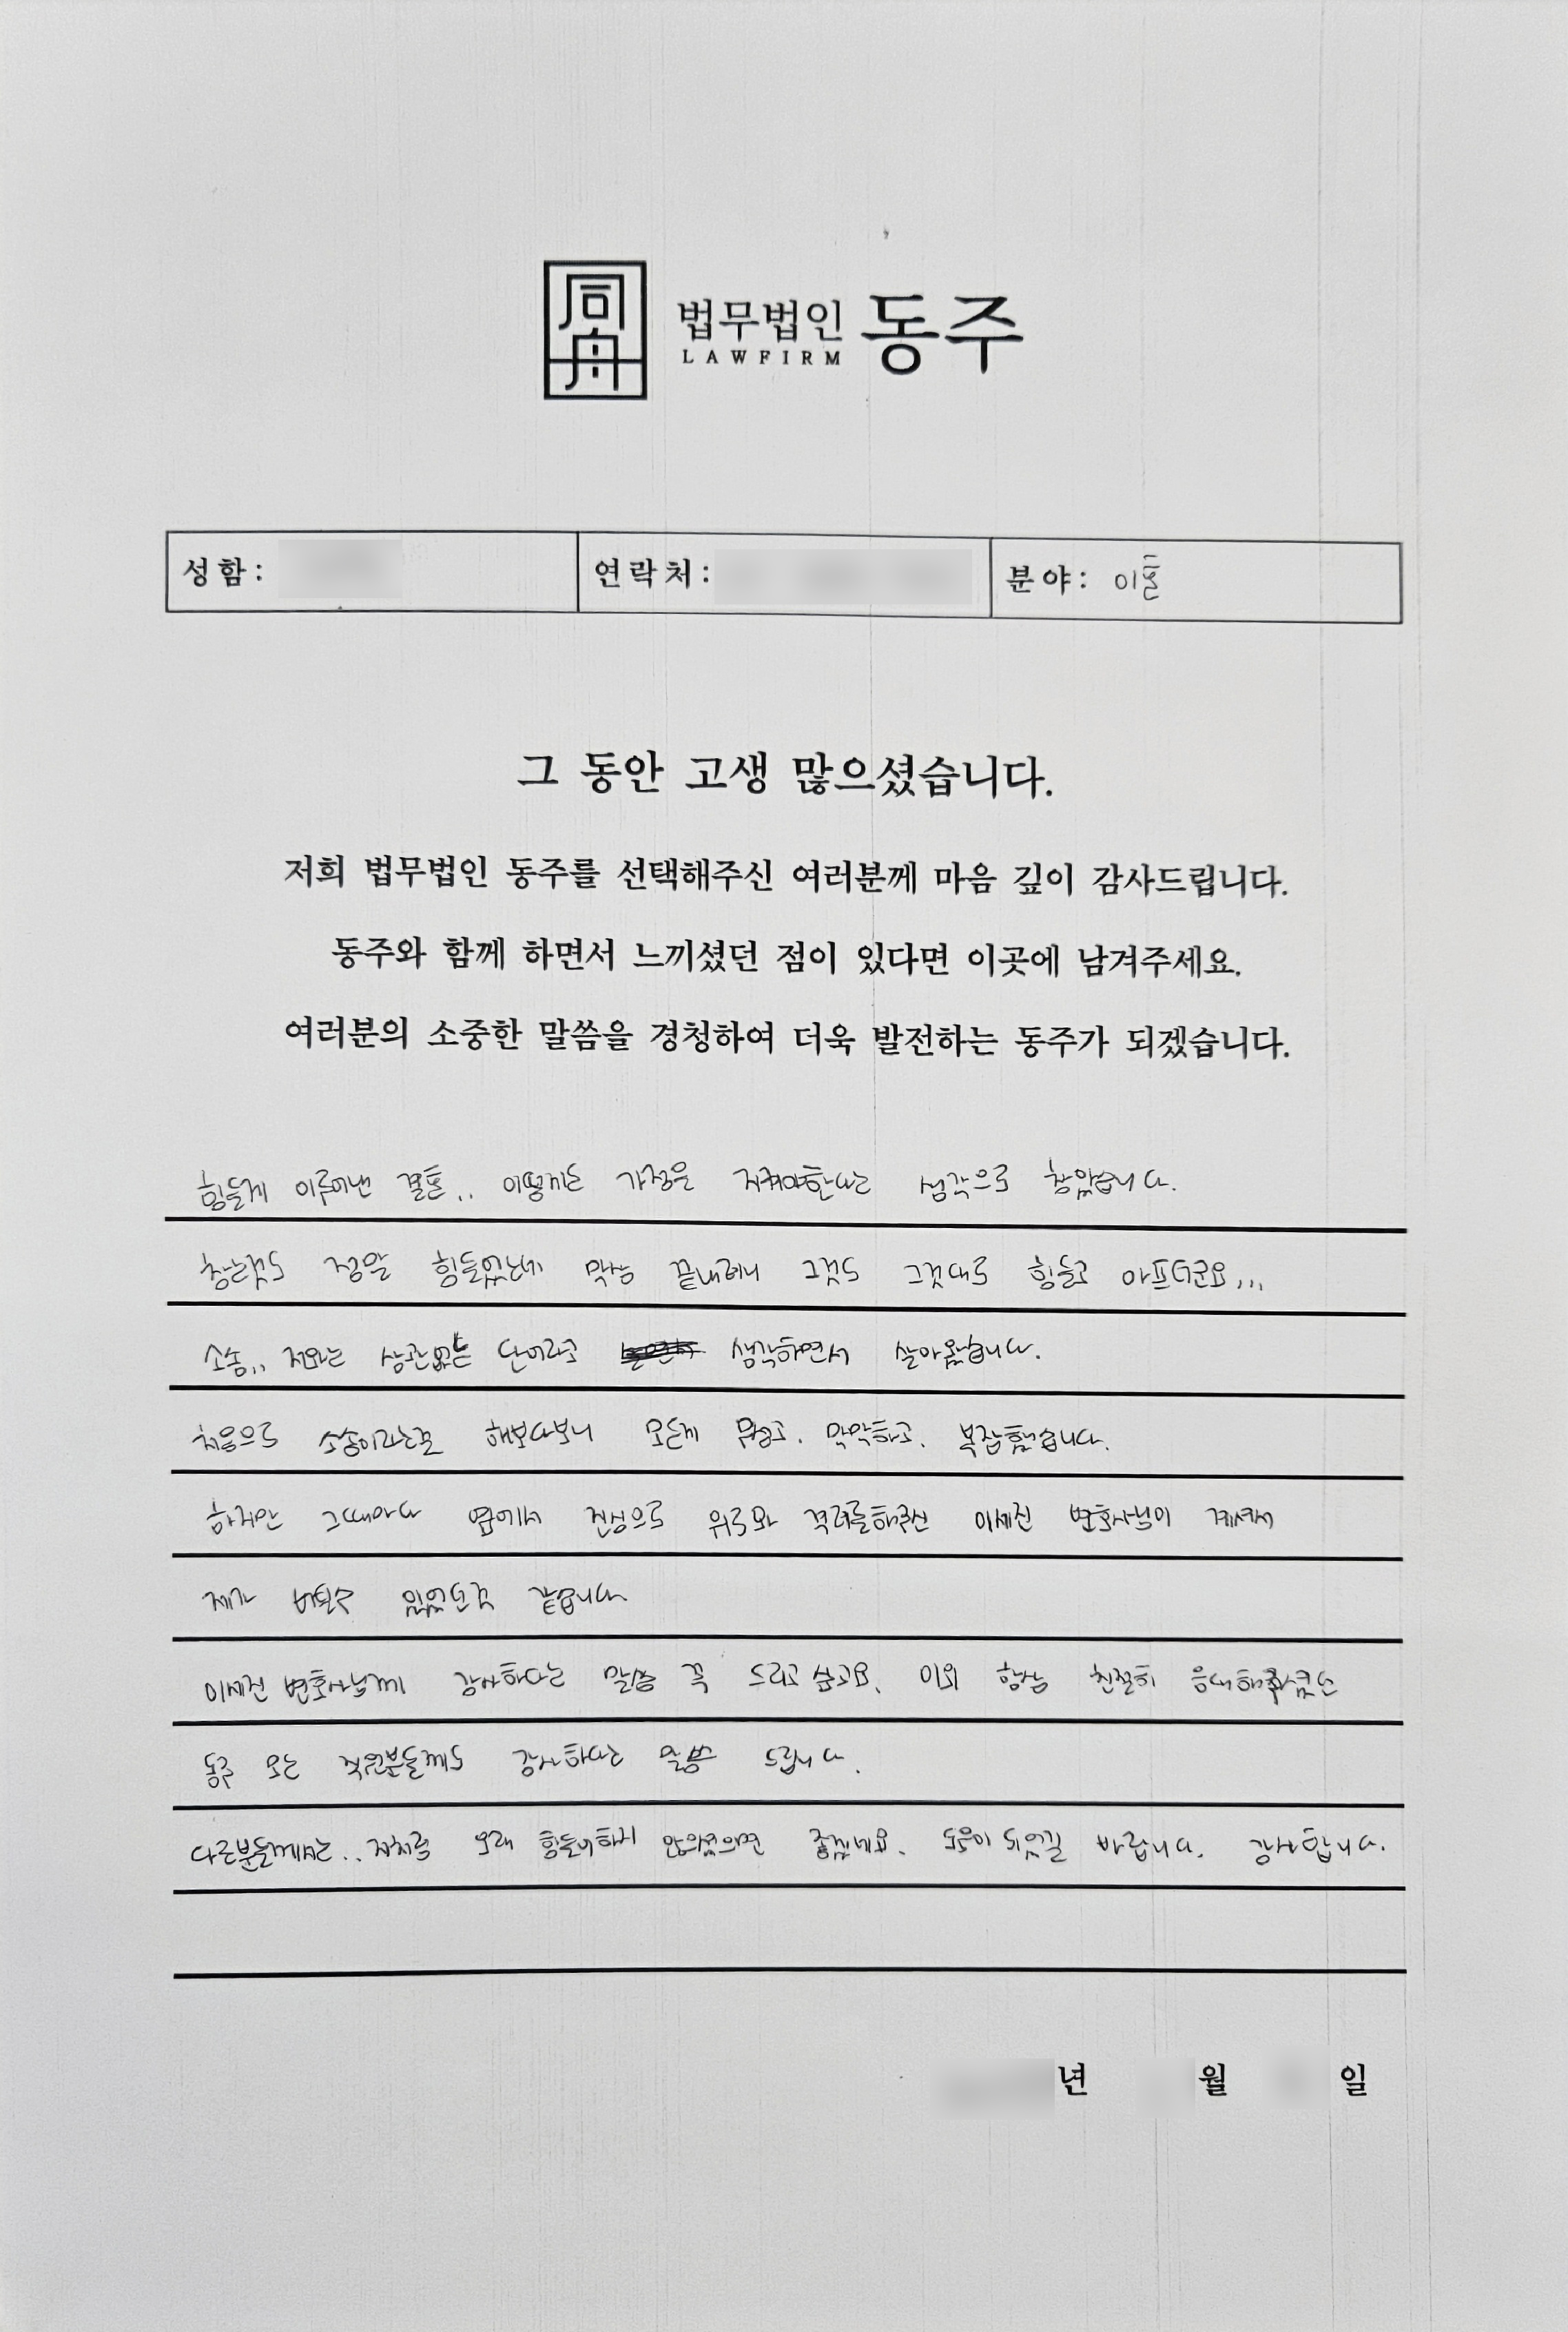 同舟
법무법인 동주
LAWFIRM
성함: 연락처: 분야: 이혼
그 동안 고생 많으셨습니다.
저희 법무법인 동주를 선택해주신 여러분께 마음 깊이 감사드립니다.
동주와 함께 하면서 느끼셨던 점이 있다면 이곳에 남겨주세요.
여러분의 소중한 말씀을 경청하여 더욱 발전하는 동주가 되겠습니다.
힘들게 이루어낸 결혼.. 어떻게든 가정을 지켜야한다는 생각으로 참았습니다.
참는것도 정말 힘들었는데 막상 끝내려니 그것도 그것대로 힘들고 아프더군요...
소송.. 저와는 상관없는 단어라고 생각하면서 살아왔습니다.
처음으로 소송이라는걸 해보다보니 모든게 무섭고. 막막하고. 복잡했습니다.
하지만 그때마다 옆에서 진심으로 위로와 격려를해주신 이세진 변호사님이 계셔서
제가 버틸수 있었던것 같습니다
이세진 변호사님께 감사하다는 말씀 꼭 드리고 싶고요. 이외 항상 친절히 응대해주셨던
동주 모든 직원분들께도 감사하다는 말씀 드립니다.
다른분들께서는.. 저처럼 오래 힘들어하지 않으셨으면 좋겠네요. 도움이 되었길 바랍니다. 감사합니다.
년 월 일